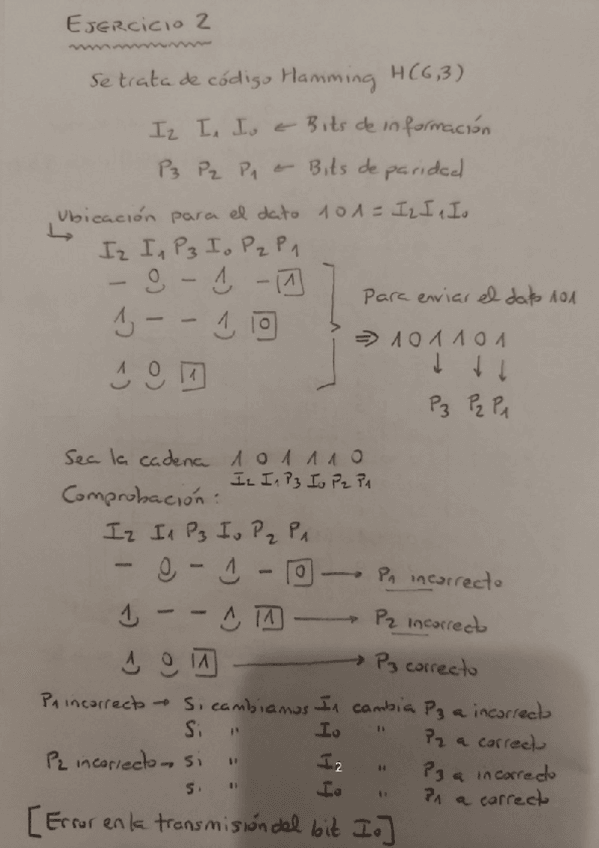 EJERCICIO 2
Se trata de código Hamming H(6,3)
I2 I1 I0 ← Bits de información
P3 P2 P1 ← Bits de paridad
Ubicación para el dato 101 = I2 I1 I0
↳ I2 I1 P3 I0 P2 P1
– 0 – 1 – 1
1 – – 1 0
1 0 1
Para enviar el dato 101
⇒ 101101
↓ ↓ ↓
P3 P2 P1
Sea la cadena 1 0 1 1 1 0
I2 I1 P3 I0 P2 P1
Comprobación:
I2 I1 P3 I0 P2 P1
– 0 – 1 – 0 → P1 incorrecto
1 – – 1 1 → P2 incorrecto
1 0 1 → P3 correcto
P1 incorrecto → Si cambiamos I1 cambia P3 a incorrecto
Si " I0 " P2 a correcto
P2 incorrecto → si " I2 " P3 a incorrecto
si " I0 " P1 a correcto
[Error en la transmisión del bit I0]